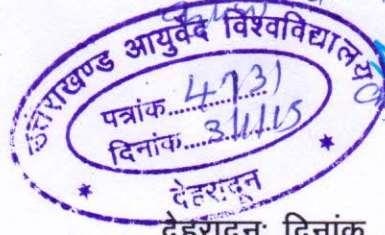 उत्तराखण्ड आयुर्वेद विश्वविद्यालय
पत्रांक 4731
दिनांक 3/11/15
देहरादून
देहरादूनः दिनांक